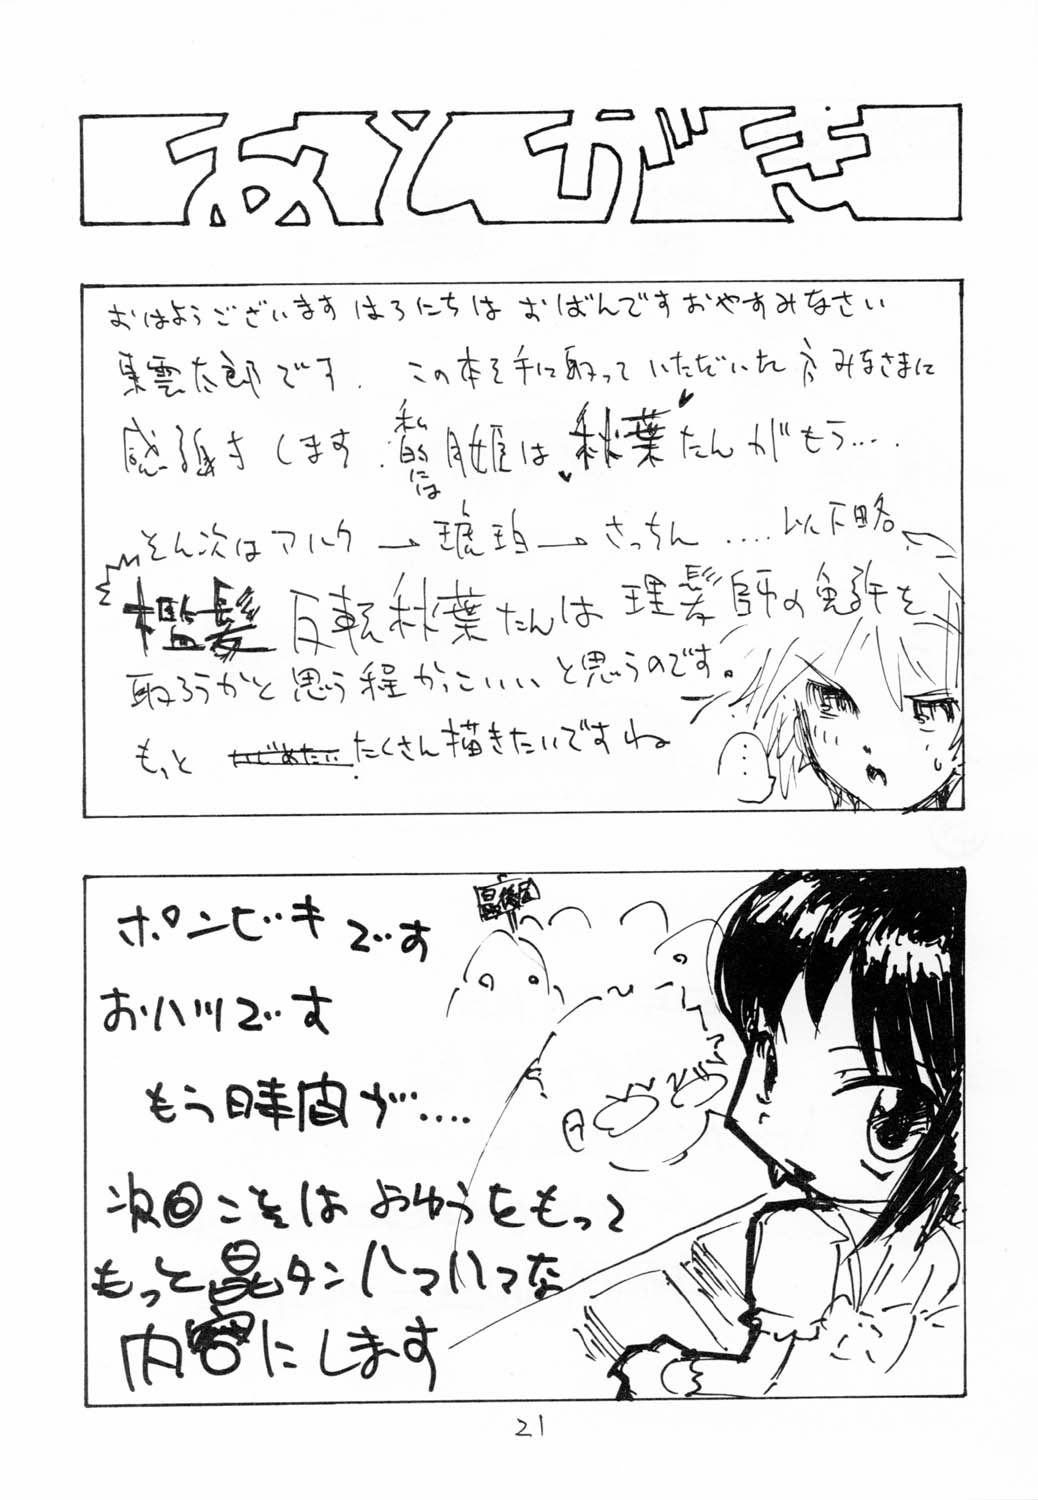 あとがき
おはようございますはろにちは おばんですおやすみなさい
雲太郎です. この本を手に取っていただいた方みなさまに
します. 私的には月姫は秋葉たんがもう….
そん次はアルク→琥珀→さっちん ….以下略
檻髪 反転秋葉たんは理髪師の免許を
取ろうかと思う程かっこいいと思うのです。
もっと いじめたい たくさん描きたいですね
…
ポンビキです
最後尾
おハツです
もう時間が….
次回こそは よゆうをもって
もっと晶タンハァハァな
内容にします
21